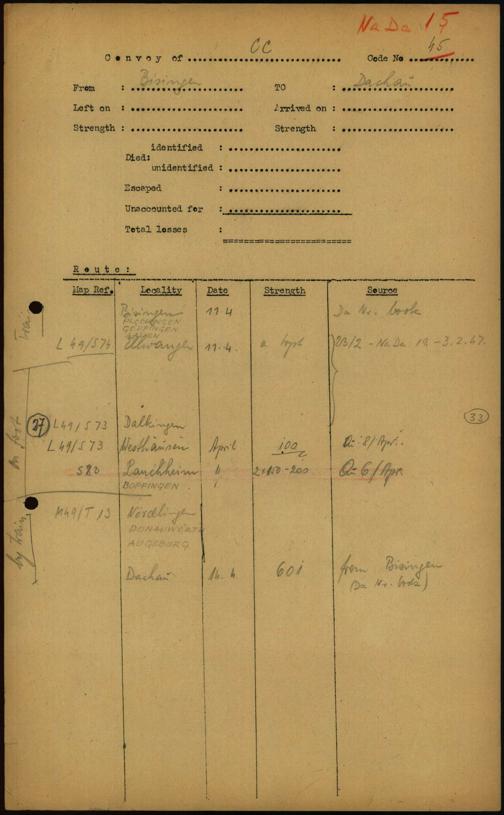 NaDa 15
Convoy of CC Code No 45
From : Bisingen TO : Dachau
Left on : Arrived on :
Strength : Strength :
identified :
Died:
unidentified :
Escaped :
Unaccounted for :
Total losses :
Route:
Map Ref. Locality Date Strength Source
Bisingen 11.4 Da Nr. book
GÖPPINGEN
L 49/S74 Ellwangen 11.4. a - NaDa 19 - 3.2.47.
27 L49/S73 Dalkingen 33
L49/S73 Westhausen April 100 Q= 8/Apr.
S80 Lauchheim " 2×150-200 Q= 6/Apr.
BOPFINGEN
on foot
M49/T 13 Nördlingen
DONAUWÖRTH
AUGSBURG
by train
Dachau 14.4 601 from Bisingen
(Da Nr. book)